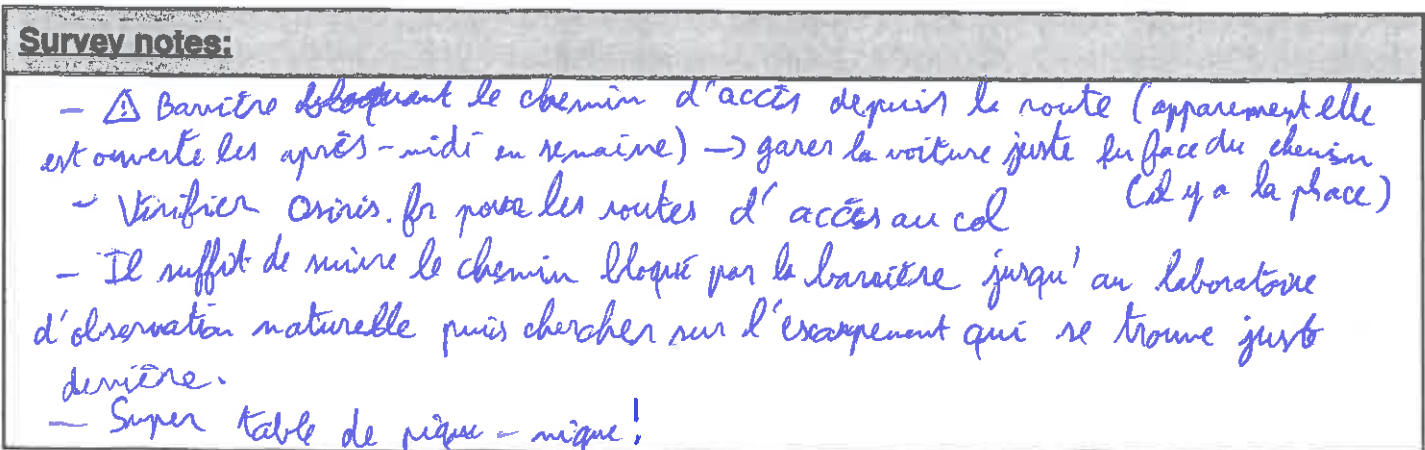 Survey notes:
- ⚠ Barrière bloquant le chemin d'accès depuis la route (apparement elle
est ouverte les après-midi en semaine) -> garer la voiture juste en face du chemin
(il y a la place)
- Vérifier Osiris.fr pour les routes d'accès au col
- Il suffit de suivre le chemin bloqué par la barrière jusqu'au laboratoire
d'observation naturelle puis chercher sur l'escarpement qui se trouve juste
derrière.
- Super table de pique-nique!